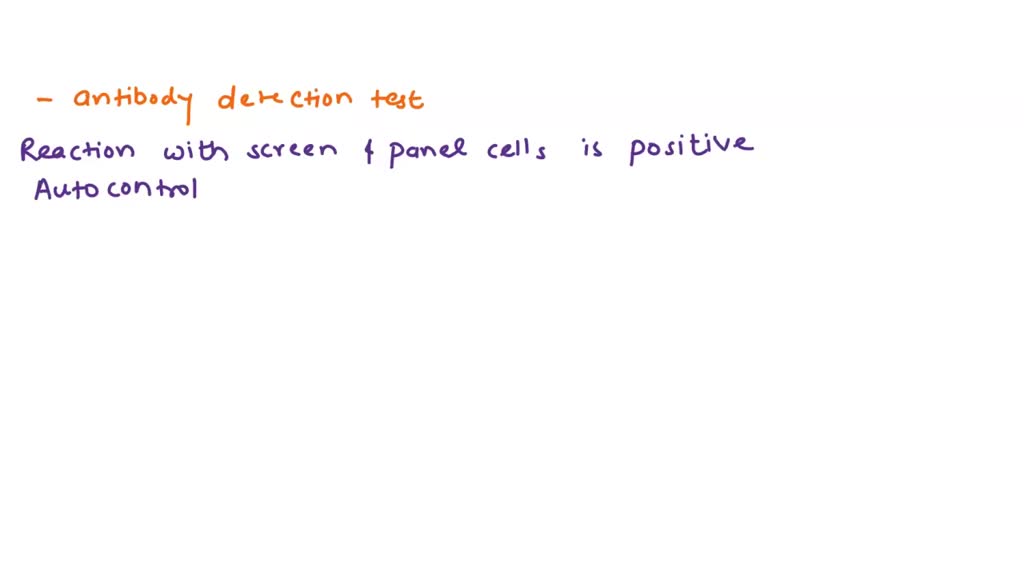 - antibody detection test
Reaction with screen & panel cells is positive
Auto control